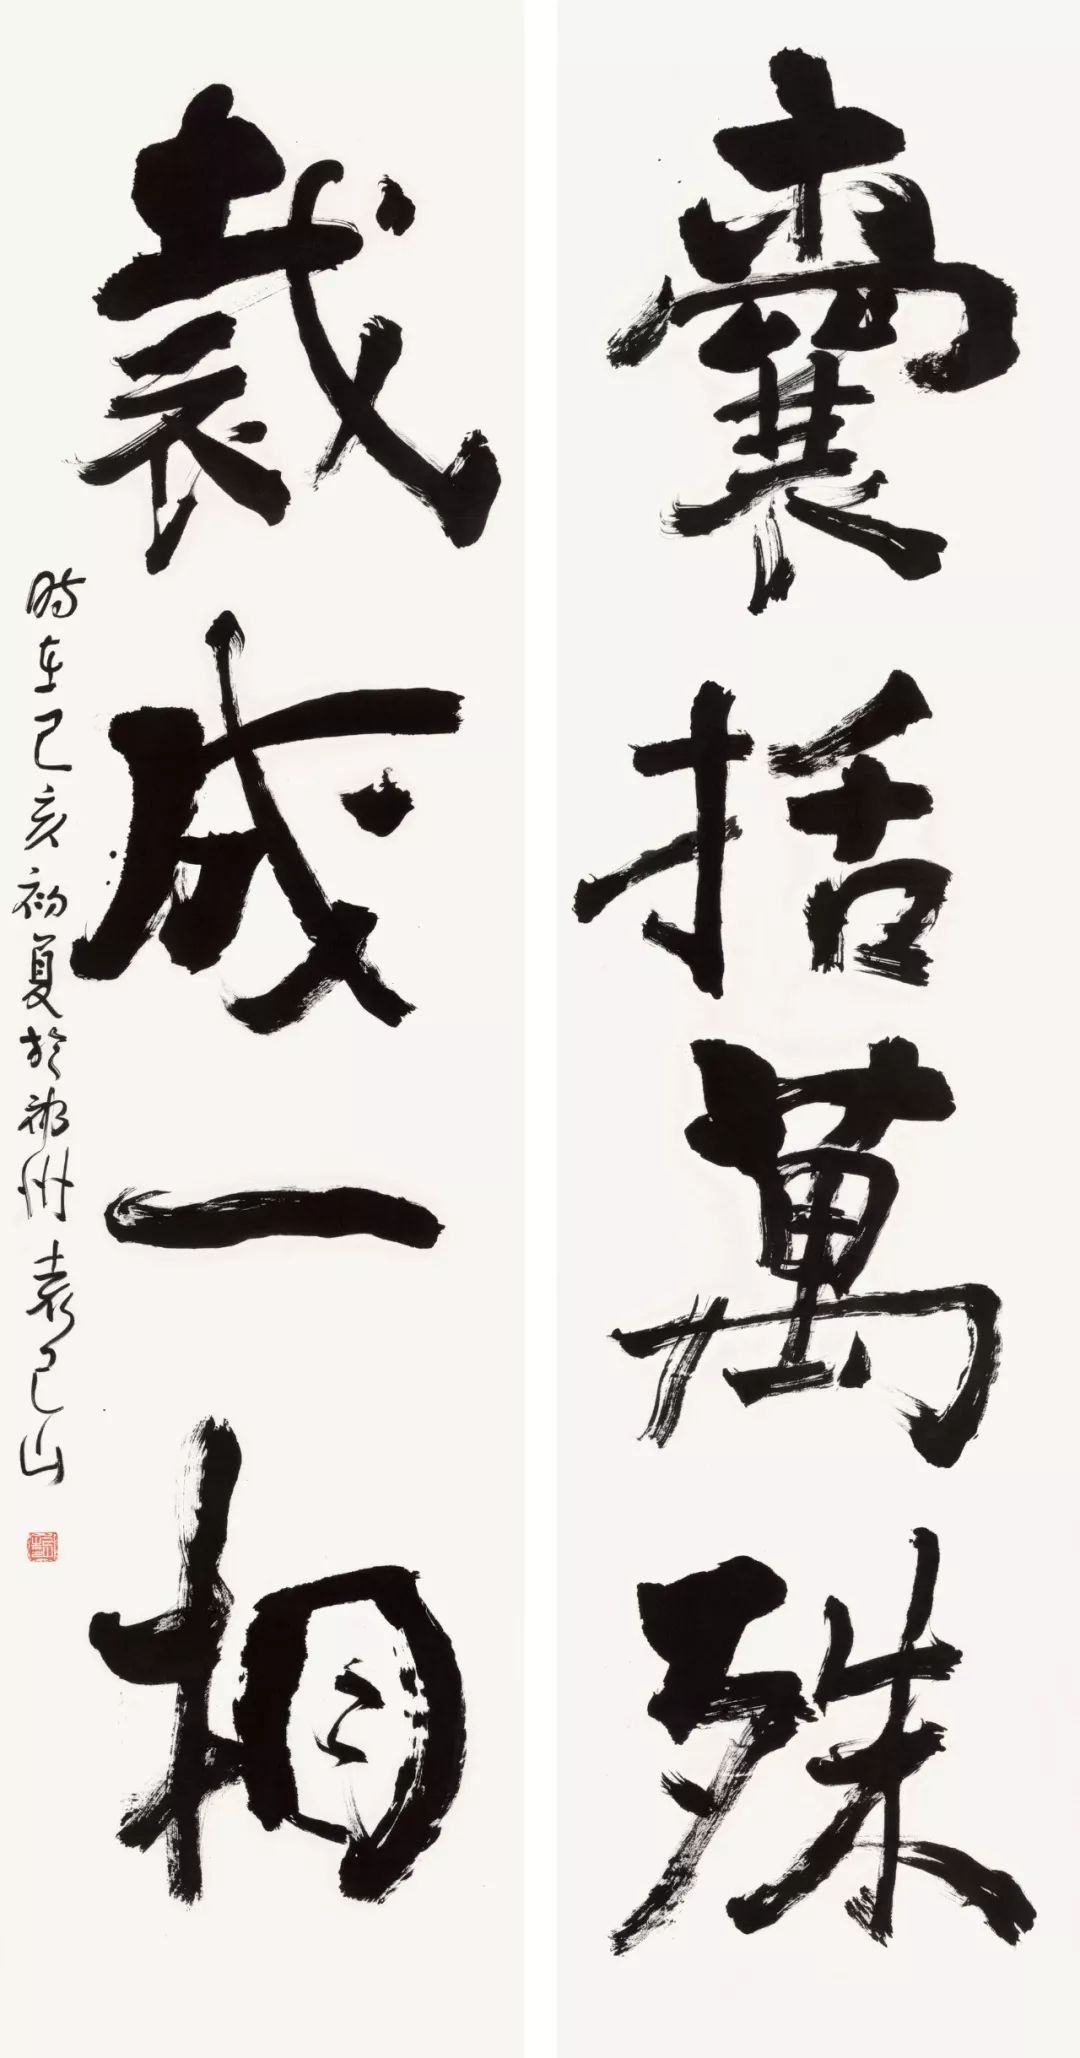 囊括萬殊
裁成一相
时在己亥初夏於州袁己山